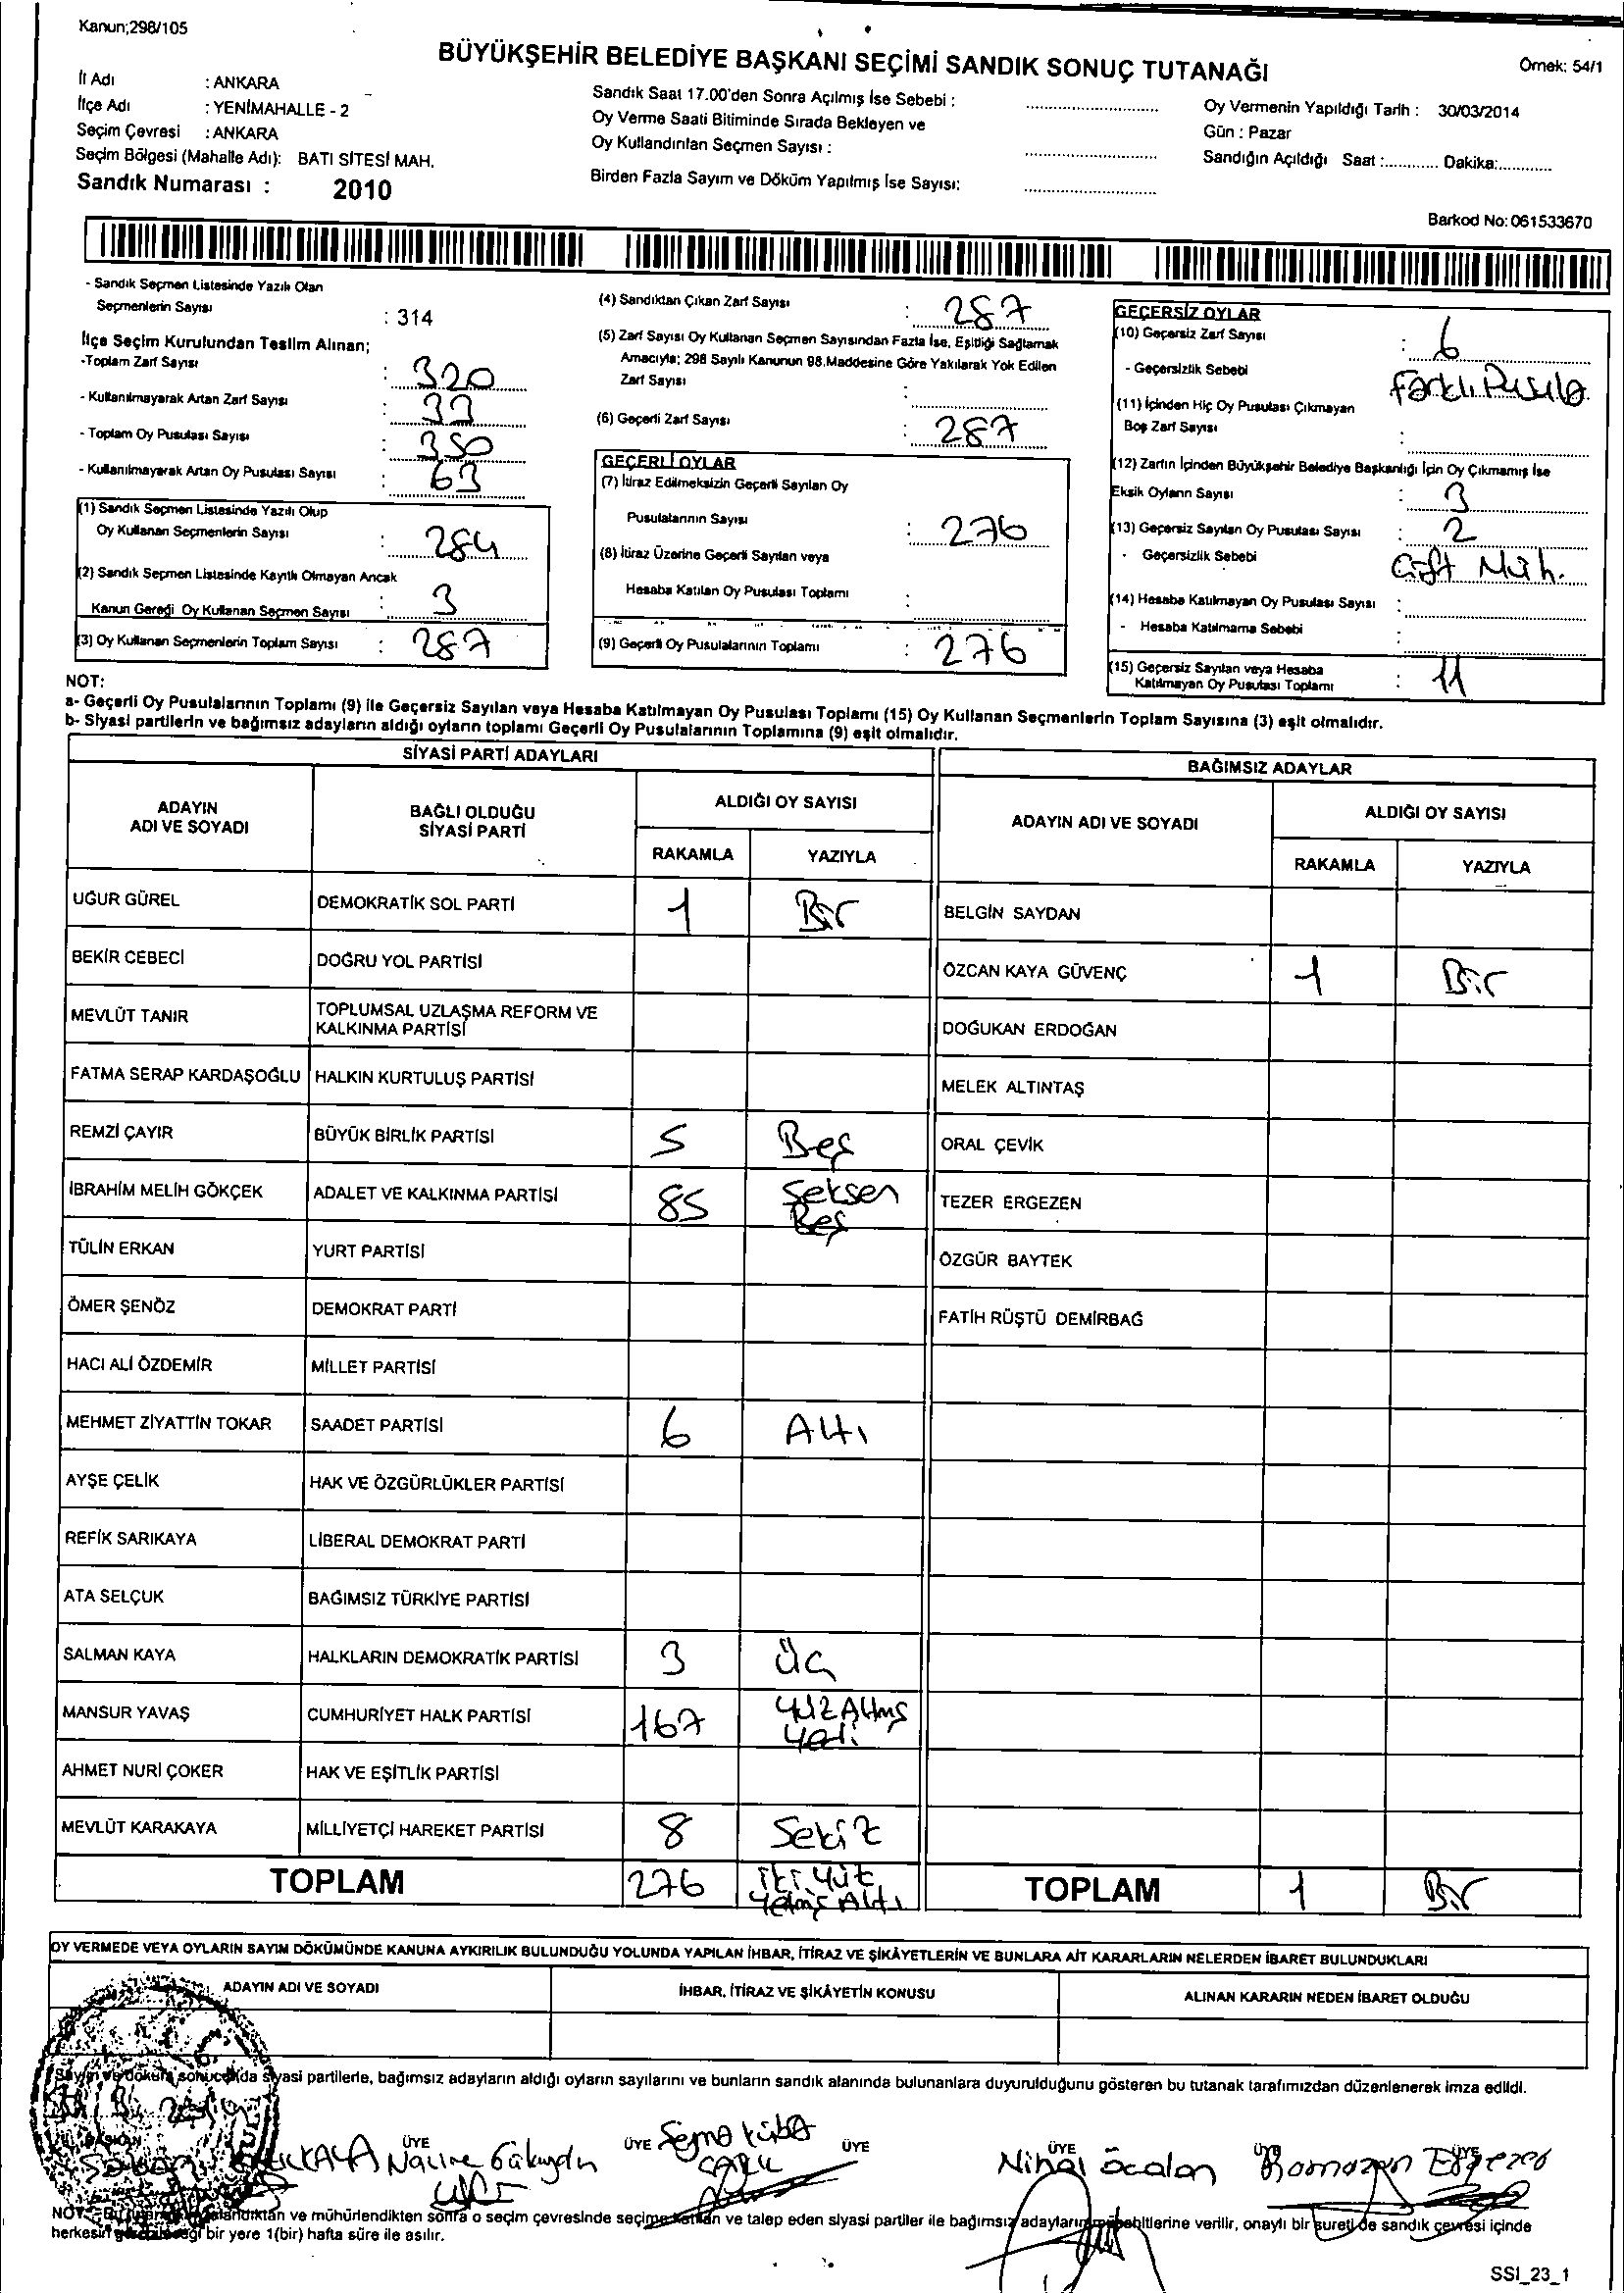 Kanun;298/105
BÜYÜKŞEHİR BELEDİYE BAŞKANI SEÇİMİ SANDIK SONUÇ TUTANAĞI
Örnek: 54/1
İl Adı : ANKARA
İlçe Adı : YENİMAHALLE - 2
Seçim Çevresi : ANKARA
Seçim Bölgesi (Mahalle Adı): BATI SİTESİ MAH.
Sandık Numarası : 2010
Sandık Saat 17.00'den Sonra Açılmış İse Sebebi :
Oy Verme Saati Bitiminde Sırada Bekleyen ve
Oy Kullandırılan Seçmen Sayısı :
Birden Fazla Sayım ve Döküm Yapılmış İse Sayısı:
Oy Vermenin Yapıldığı Tarih : 30/03/2014
Gün : Pazar
Sandığın Açıldığı Saat :............ Dakika:............
Barkod No: 061533670
- Sandık Seçmen Listesinde Yazılı Olan
Seçmenlerin Sayısı : 314
İlçe Seçim Kurulundan Teslim Alınan;
-Toplam Zarf Sayısı : 320
- Kullanılmayarak Artan Zarf Sayısı : 33
- Toplam Oy Pusulası Sayısı : 350
- Kullanılmayarak Artan Oy Pusulası Sayısı : 63
(1) Sandık Seçmen Listesinde Yazılı Olup
Oy Kullanan Seçmenlerin Sayısı : 284
(2) Sandık Seçmen Listesinde Kayıtlı Olmayan Ancak
Kanun Gereği Oy Kullanan Seçmen Sayısı : 3
(3) Oy Kullanan Seçmenlerin Toplam Sayısı : 287
(4) Sandıktan Çıkan Zarf Sayısı : 287
(5) Zarf Sayısı Oy Kullanan Seçmen Sayısından Fazla İse, Eşitliği Sağlamak
Amacıyla; 298 Sayılı Kanunun 98.Maddesine Göre Yakılarak Yok Edilen
Zarf Sayısı :
(6) Geçerli Zarf Sayısı : 287
GEÇERLİ OYLAR
(7) İtiraz Edilmeksizin Geçerli Sayılan Oy
Pusulalarının Sayısı : 276
(8) İtiraz Üzerine Geçerli Sayılan veya
Hesaba Katılan Oy Pusulası Toplamı :
(9) Geçerli Oy Pusulalarının Toplamı : 276
GEÇERSİZ OYLAR
(10) Geçersiz Zarf Sayısı : 6
- Geçersizlik Sebebi Farklı Pusula
(11) İçinden Hiç Oy Pusulası Çıkmayan
Boş Zarf Sayısı :
(12) Zarfın İçinden Büyükşehir Belediye Başkanlığı İçin Oy Çıkmamış İse
Eksik Oyların Sayısı : 3
(13) Geçersiz Sayılan Oy Pusulası Sayısı : 2
- Geçersizlik Sebebi Çift Müh.
(14) Hesaba Katılmayan Oy Pusulası Sayısı :
- Hesaba Katılmama Sebebi :
(15) Geçersiz Sayılan veya Hesaba
Katılmayan Oy Pusulası Toplamı : 11
NOT:
a- Geçerli Oy Pusulalarının Toplamı (9) ile Geçersiz Sayılan veya Hesaba Katılmayan Oy Pusulası Toplamı (15) Oy Kullanan Seçmenlerin Toplam Sayısına (3) eşit olmalıdır.
b- Siyasi partilerin ve bağımsız adayların aldığı oyların toplamı Geçerli Oy Pusulalarının Toplamına (9) eşit olmalıdır.
SİYASİ PARTİ ADAYLARI
ADAYIN ADI VE SOYADI
BAĞLI OLDUĞU SİYASİ PARTİ
ALDIĞI OY SAYISI
RAKAMLA YAZIYLA
UĞUR GÜREL DEMOKRATİK SOL PARTİ 1 Bir
BEKİR CEBECİ DOĞRU YOL PARTİSİ
MEVLÜT TANIR TOPLUMSAL UZLAŞMA REFORM VE KALKINMA PARTİSİ
FATMA SERAP KARDAŞOĞLU HALKIN KURTULUŞ PARTİSİ
REMZİ ÇAYIR BÜYÜK BİRLİK PARTİSİ 5 Beş
İBRAHİM MELİH GÖKÇEK ADALET VE KALKINMA PARTİSİ 85 Seksen Beş
TÜLİN ERKAN YURT PARTİSİ
ÖMER ŞENÖZ DEMOKRAT PARTİ
HACI ALİ ÖZDEMİR MİLLET PARTİSİ
MEHMET ZİYATTİN TOKAR SAADET PARTİSİ 6 Altı
AYŞE ÇELİK HAK VE ÖZGÜRLÜKLER PARTİSİ
REFİK SARIKAYA LİBERAL DEMOKRAT PARTİ
ATA SELÇUK BAĞIMSIZ TÜRKİYE PARTİSİ
SALMAN KAYA HALKLARIN DEMOKRATİK PARTİSİ 3 Üç
MANSUR YAVAŞ CUMHURİYET HALK PARTİSİ 167 YüzAltmş Yedi
AHMET NURİ ÇOKER HAK VE EŞİTLİK PARTİSİ
MEVLÜT KARAKAYA MİLLİYETÇİ HAREKET PARTİSİ 8 Sekiz
TOPLAM 276 İki Yüz Yetmiş Altı
BAĞIMSIZ ADAYLAR
ADAYIN ADI VE SOYADI
ALDIĞI OY SAYISI
RAKAMLA YAZIYLA
BELGİN SAYDAN
ÖZCAN KAYA GÜVENÇ 1 Bir
DOĞUKAN ERDOĞAN
MELEK ALTINTAŞ
ORAL ÇEVİK
TEZER ERGEZEN
ÖZGÜR BAYTEK
FATİH RÜŞTÜ DEMİRBAĞ
TOPLAM 1 Bir
OY VERMEDE VEYA OYLARIN SAYIM DÖKÜMÜNDE KANUNA AYKIRILIK BULUNDUĞU YOLUNDA YAPILAN İHBAR, İTİRAZ VE ŞİKÂYETLERİN VE BUNLARA AİT KARARLARIN NELERDEN İBARET BULUNDUKLARI
ADAYIN ADI VE SOYADI
İHBAR, İTİRAZ VE ŞİKÂYETİN KONUSU
ALINAN KARARIN NEDEN İBARET OLDUĞU
Sayım ve döküm sonucunda siyasi partilerle, bağımsız adayların aldığı oyların sayılarını ve bunların sandık alanında bulunanlara duyurulduğunu gösteren bu tutanak tarafımızdan düzenlenerek imza edildi.
BAŞKAN ÜYE ÜYE ÜYE ÜYE ÜYE ÜYE
Şaban Naime Sema Kübra Nihal Öcalan Ramazan
NOT : Bu tutanak ve mühürlendikten sonra o seçim çevresinde seçime katılan ve talep eden siyasi partiler ile bağımsız adayların müşahitlerine verilir, onaylı bir sureti de sandık çevresi içinde
herkesin görebileceği bir yere 1(bir) hafta süre ile asılır.
SSI_23_1